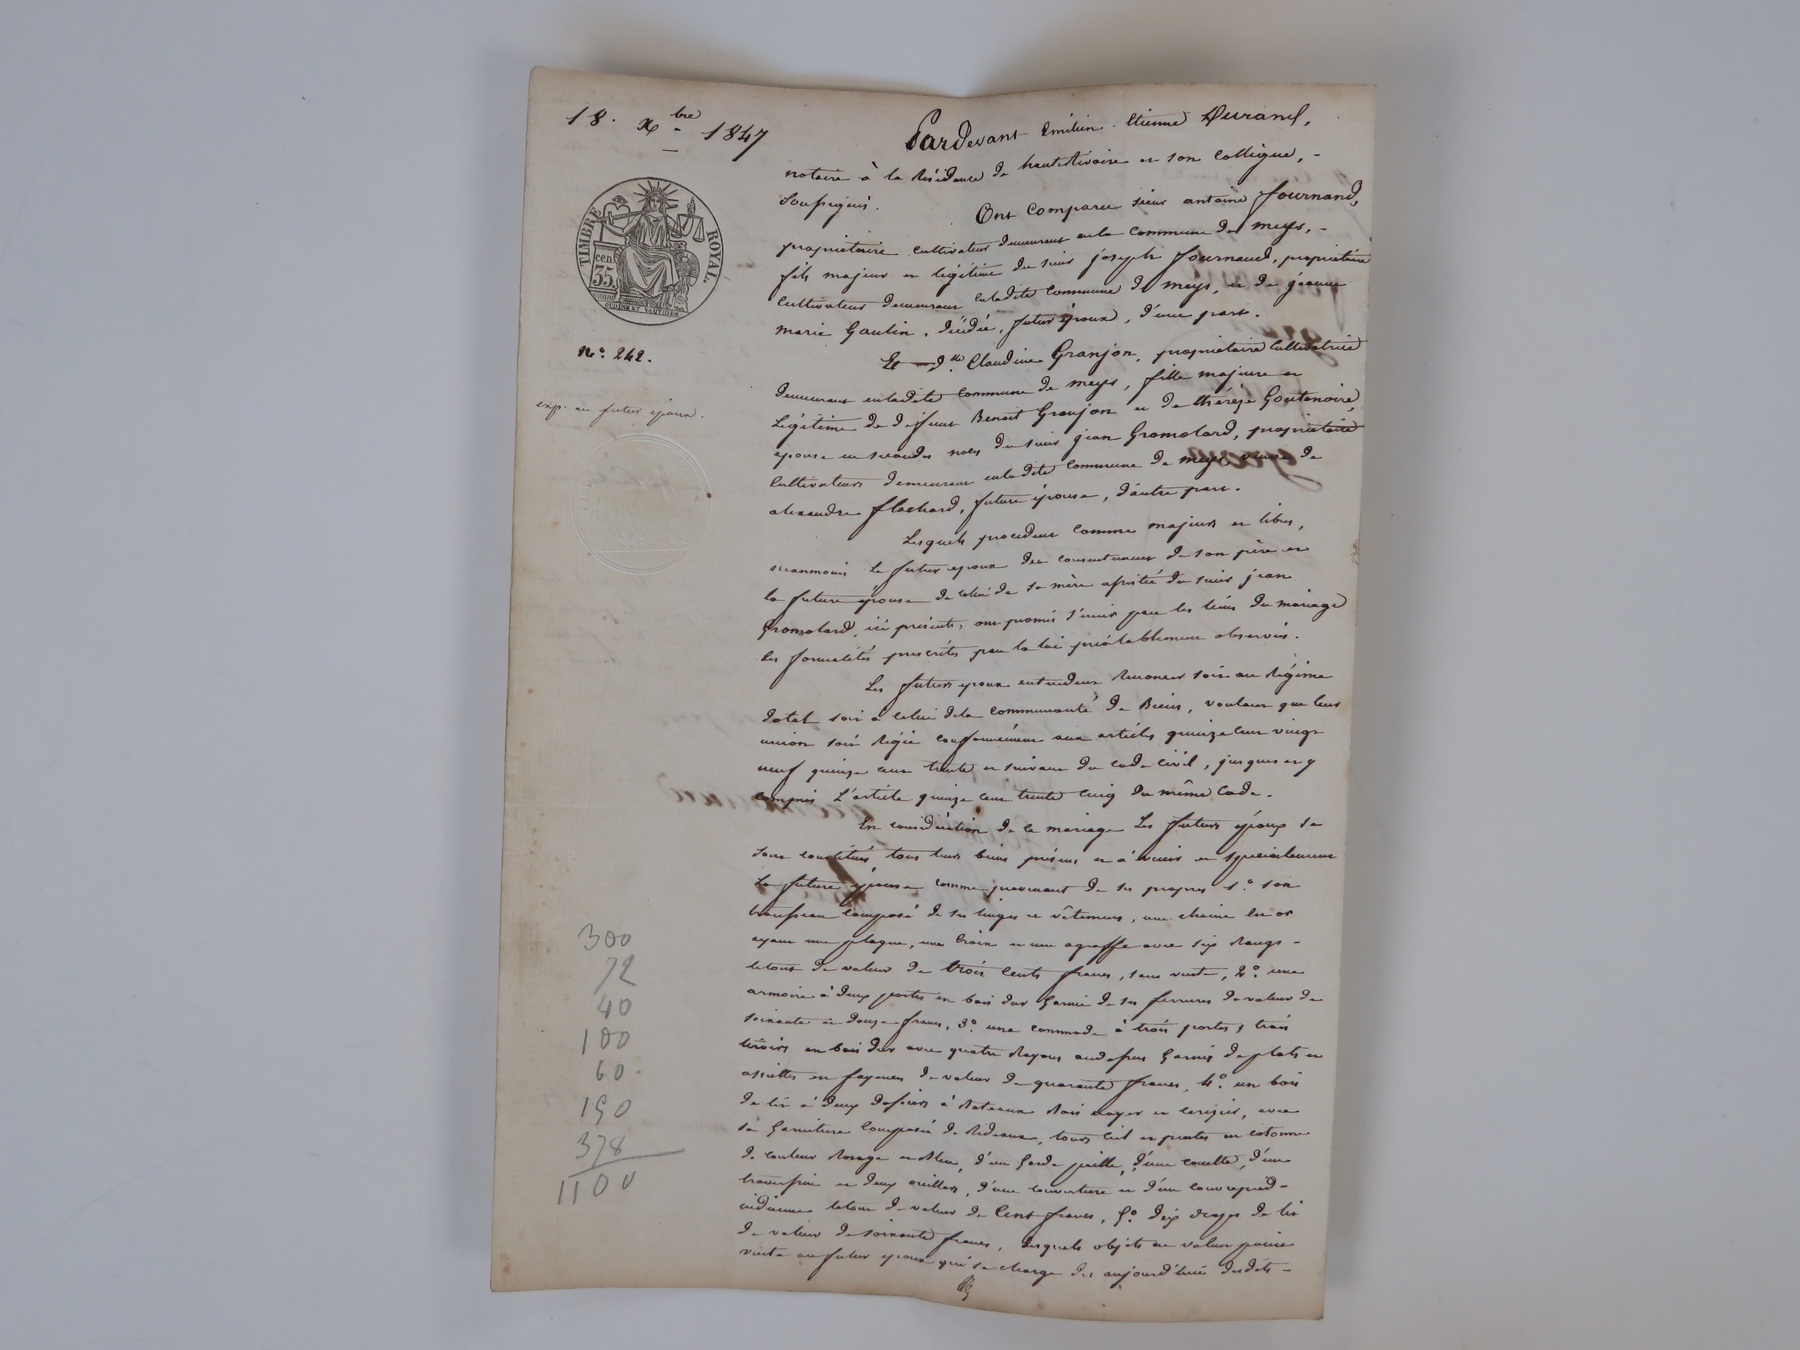 18. Xbre 1847
TIMBRE ROYAL
35 cen.
No. 242.
exp. au futur époux.
Pardevant Emilien Etienne Durand,
notaire à la Résidence de hauteRivoire et son Collègue,
Soussignés.
Ont Comparu sieur antoine Journaud,
propriétaire cultivateur demeurant en la Commune de meys,
fils majeur et légitime du sieur joseph Journaud, propriétaire
cultivateur demeurant enladite Commune de meys, et de jeanne
marie Gaulin, décédée, futur époux, d'une part.
Et dlle Claudine Granjon, propriétaire Cultivatrice
demeurant enladite Commune de meys, fille majeure et
Légitime de defunt Benoit Granjon et de thérèze Goutenoire,
epouse en secondes noces du sieur jean Gromolard, propriétaire
Cultivateurs demeurant enladite Commune de meys veuve de
alexandre flachard, future épouse, d'autre part.
Lesquels procedant comme majeurs et libres,
neanmoins le futur epoux du consentement de son père et
la future epouse de celui de sa mère assistée du sieur jean
Gromolard, ici présents, ont promis s'unir par les liens du mariage
les formalités prescrites par la loi préalablement observées.
Les futurs epoux entendent Renoncer soit au Régime
dotal soit à celui dela communauté de Biens, voulant que leur
union soit Régie conformément aux articles quinze cent vingt
neuf quinze cent trente et suivant du code civil, jusques et y
compris l'article quinze cent trente cinq du même Code.
En considération de ce mariage Les futurs époux se
sont constitués tous leurs biens présens et à venir et spécialement
La future épouse comme provenant de ses propres 1.o son
trousseau composé de ses linges et vêtemens, une chaine en or
ayant une plaque, une Croix et une agraffe avec six Rangs
letout de valeur de trois Cents francs, sans vente, 2.o une
armoire à deux portes en bois dur Garnie de ses ferrures de valeur de
soixante et douze francs, 3.o une commode à trois portes, trois
tiroirs en bois dur avec quatre Rayons audessus Garnis de plats et
assiettes en fayence de valeur de quarante francs, 4.o un bois
de lit à deux dossiers à Rateaux Bois noyer et cerisier, avec
sa Garniture Composée de Rideaux, tours Ciel et pentes en cotonne
de couleur Rouge et Bleu, d'un Garde paille, d'une couette, d'un
traversin et deux oreillers, d'une couverture et d'un couvrepied
indienne letout de valeur de Cent francs, 5.o dix draps de lit
de valeur de soixante francs, desquels objets en valeur passe
vente au futur epoux qui se charge dès aujourd'hui desdits
300
72
40
100
60
150
378
1100